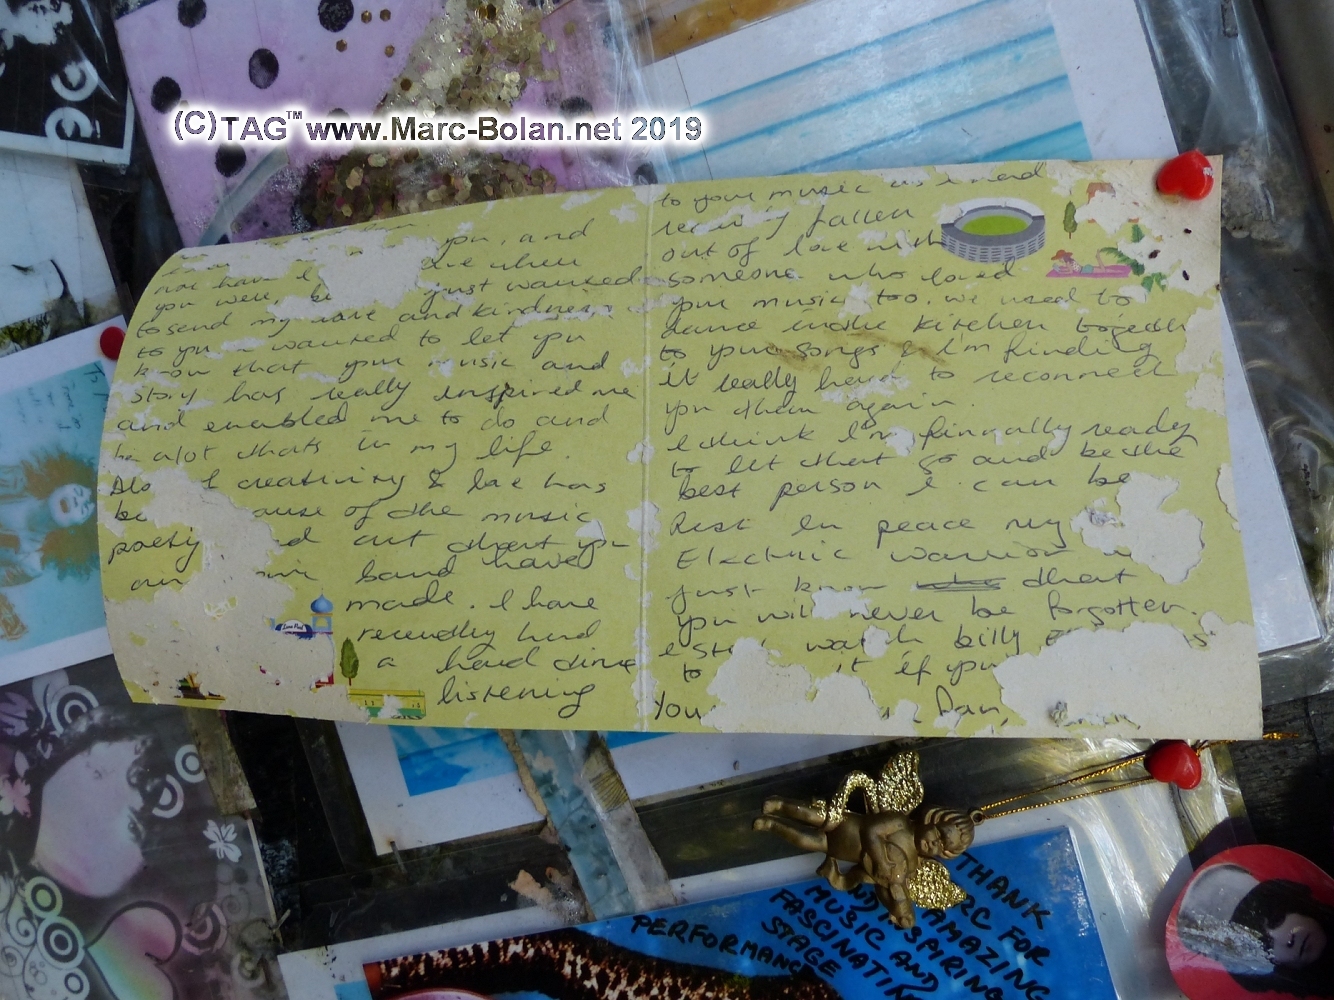 (C)TAG™ www.Marc-Bolan.net 2019
you, and
not have when
you were, just wanted
to send my love and kindness
to you wanted to let you
know that your music and
story has really inspired me
and enabled me to do and
be alot thats in my life.
creativity & love has
because of the music
poetry and art that you
and band have
made. I have
recently had
a hard time
listening
to your music as I
fallen
out of love with
someone who loved
your music too. we used to
dance in the kitchen together
to your songs & I'm finding
it really hard to reconnect
you them again.
I think I'm finnally ready
to let that go and be the
best person I can be
Rest in peace my
Electric warrior
just know that
you will never be forgotten.
watch billy
to it if you
You
THANK
MARC FOR
AMAZING
AND INSPIRING
MUSIC AND
FASCINATING
STAGE
PERFORMANCE